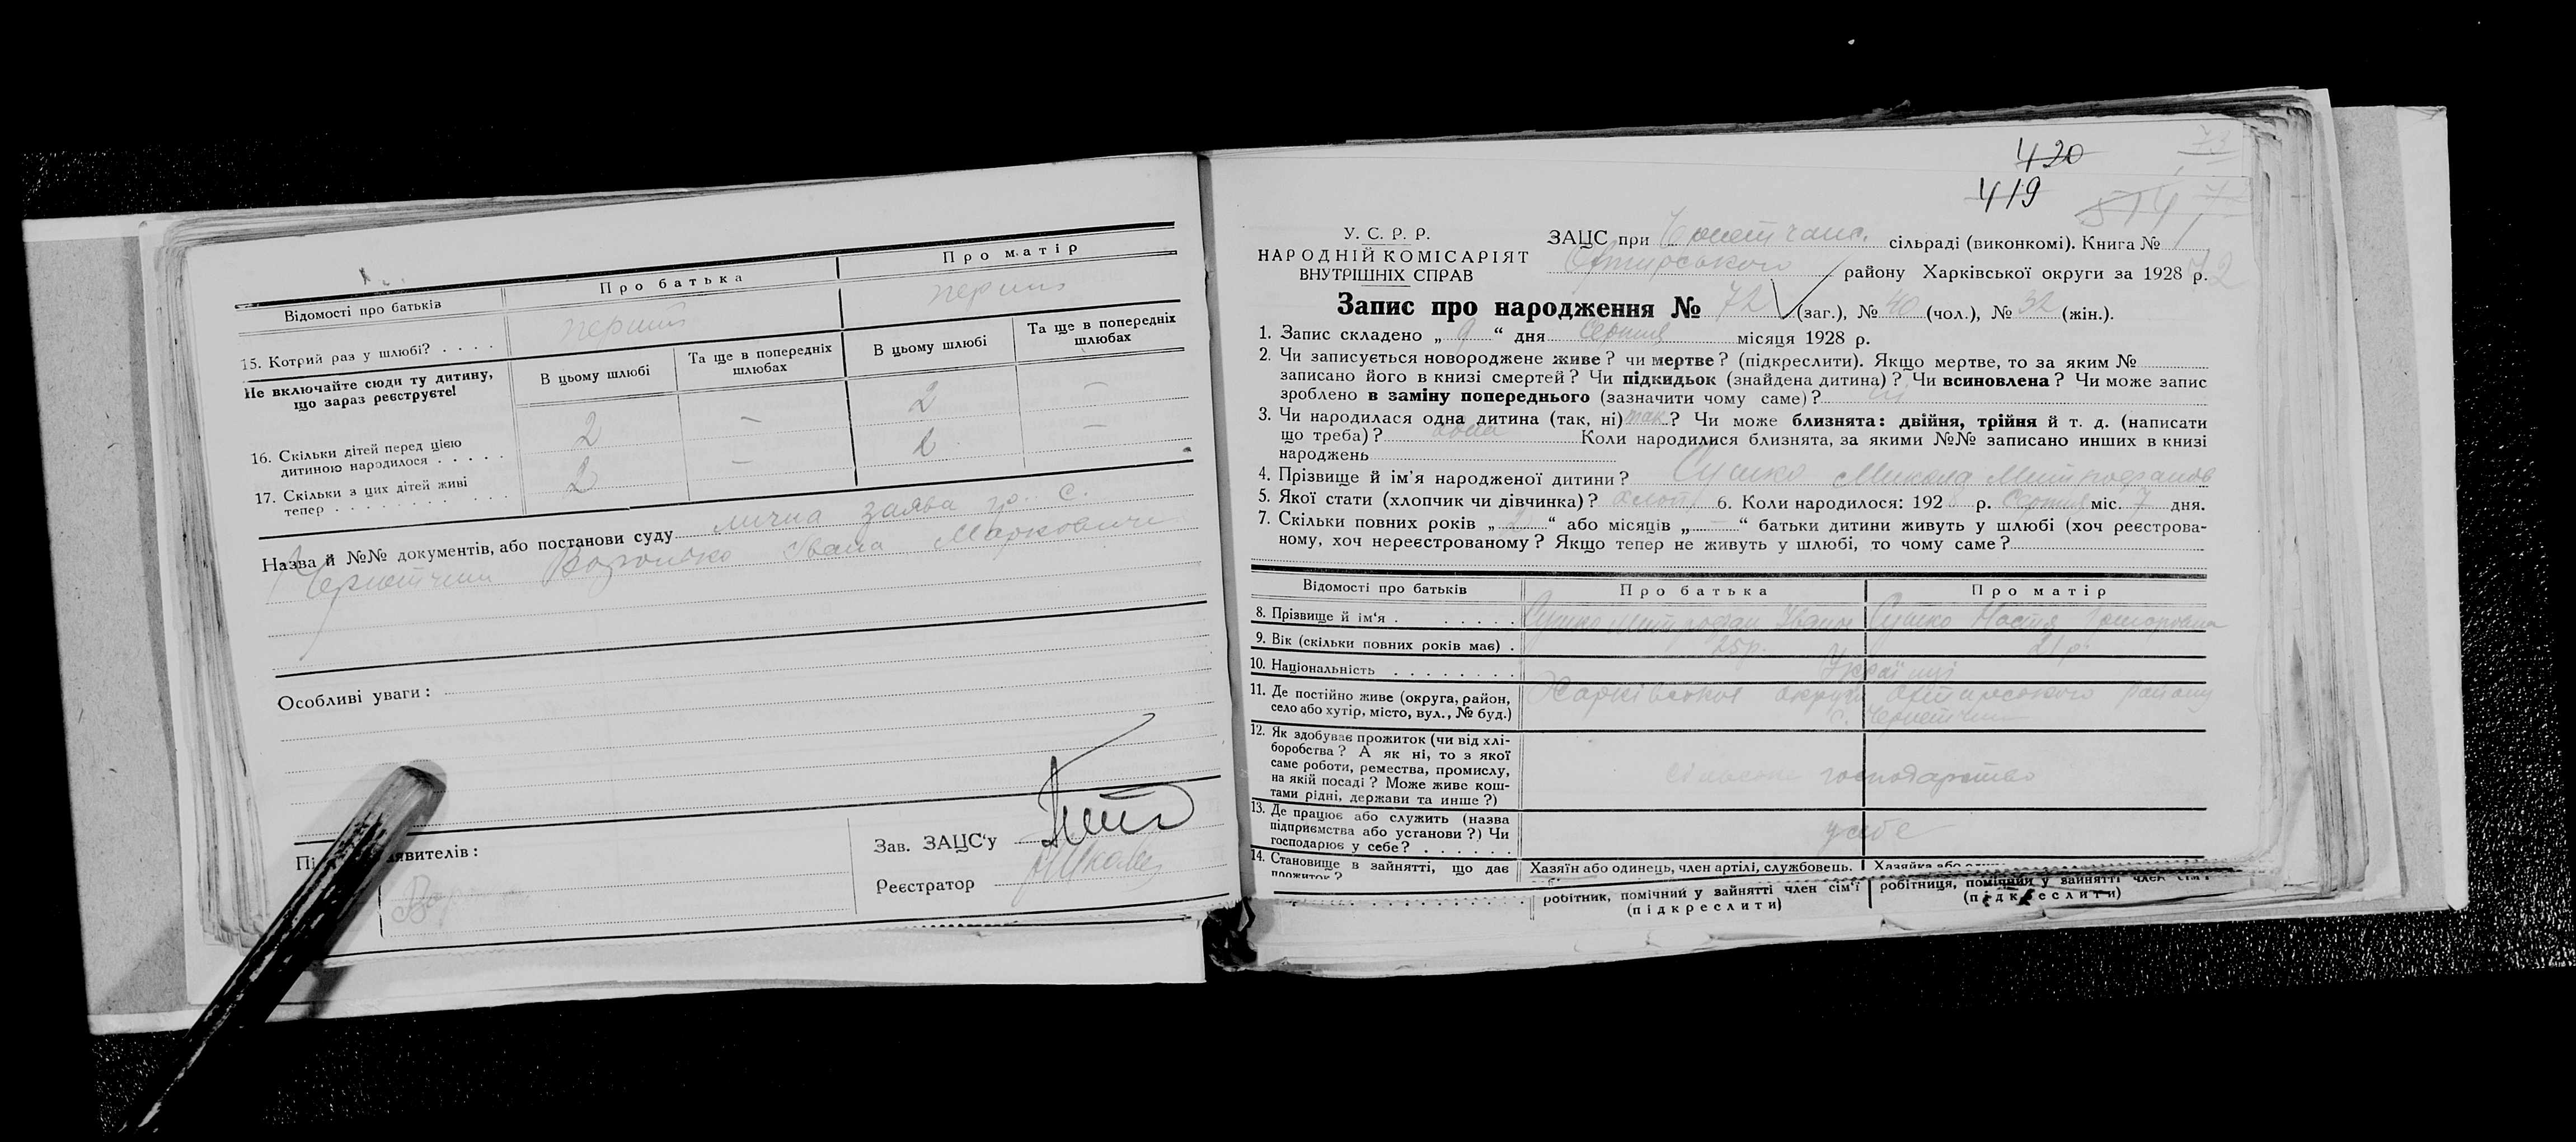 Відомості про батьків
Про батька
Про матір
15. Котрий раз у шлюбі? . . . .
перший
перший
Не включайте сюди ту дитину, що зараз реєструєте!
В цьому шлюбі
Та ще в попередніх шлюбах
В цьому шлюбі
Та ще в попередніх шлюбах
16. Скільки дітей перед цією
дитиною народилося . . . . .
2
—
2
—
17. Скільки з цих дітей живі
тепер . . . . . . . . . . .
2
—
2
—
Назва й №№ документів, або постанови суду лична заява гр. с.
Чернетчин Івана Марковича
Особливі уваги:
явителів:
Зав. ЗАЦС'у
Реєстратор
420
419
У. С. Р. Р.
НАРОДНІЙ КОМІСАРІЯТ
ВНУТРІШНІХ СПРАВ
ЗАЦС при Чернетчанс. сільраді (виконкомі). Книга № 1
Охтирського району Харківської округи за 1928 р.
72
Запис про народження № 72 (заг.), № 40 (чол.), № 32 (жін.).
1. Запис складено „ 9 “ дня Серпня місяця 1928 р.
2. Чи записується новороджене живе? чи мертве? (підкреслити). Якщо мертве, то за яким №
записано його в книзі смертей? Чи підкидьок (знайдена дитина)? Чи всиновлена? Чи може запис
зроблено в заміну попереднього (зазначити чому саме)? ні
3. Чи народилася одна дитина (так, ні) так? Чи може близнята: двійня, трійня й т. д. (написати
що треба)? одна Коли народилися близнята, за якими №№ записано инших в книзі
народжень
4. Прізвище й ім'я народженої дитини? Сушко Микола Митрофанов
5. Якої стати (хлопчик чи дівчинка)? хлоп. 6. Коли народилося: 1928 р. Серпня міс. 7 дня.
7. Скільки повних років „ 2 “ або місяців „ — “ батьки дитини живуть у шлюбі (хоч реєстрова-
ному, хоч нереєстрованому? Якщо тепер не живуть у шлюбі, то чому саме?
Відомості про батьків
Про батька
Про матір
8. Прізвище й ім'я . . . . . . .
Сушко Митрофан Іванов
Сушко Настя
9. Вік (скільки повних років має) .
25 р.
21 р.
10. Національність . . . . . . . .
Українці
11. Де постійно живе (округа, район,
село або хутір, місто, вул., № буд.)
Харківської округи Охтирського району
с. Чернетчина
12. Як здобуває прожиток (чи від хлі-
боробства? А як ні, то з якої
саме роботи, ремества, промислу,
на якій посаді? Може живе кош-
тами рідні, держави та инше?)
сільське господарство
13. Де працює або служить (назва
підприємства або установи?) Чи
господарює у себе? . . . . . .
у себе
14. Становище в зайнятті, що дає
прожиток?
Хазяїн або одинець, член артілі, службовець.
робітник, помічний у зайнятті член сім'ї
(підкреслити)
Хазяйка або
робітниця, помічний у зайнятті член сім'ї
(підкреслити)